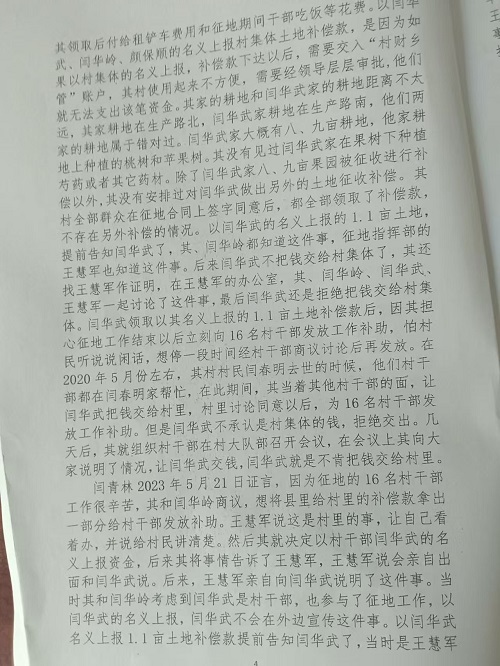 其领取后付给租铲车费用和征地期间干部吃饭等花费。以闫华
武、闫华岭、颜保顺的名义上报村集体土地补偿款，是因为如
果以村集体的名义上报，补偿款下达以后，需要交入“村财乡
管”账户，其村使用起来不方便，需要经领导层层审批，他们
就无法支出该笔资金。其家的耕地和闫华武家的耕地距离不太
远，其家耕地在生产路北，闫华武家耕地在生产路南，他们两
家的耕地属于错对过。闫华武家大概有八、九亩耕地，他家耕
地上种植的桃树和苹果树。其没有见过闫华武家在果树下种植
芍药或者其它药材。除了闫华武家八、九亩果园被征收进行补
偿以外，其没有安排过对闫华武做出另外的土地征收补偿。其
村全部群众在征地合同上签字同意后，都全部领取了补偿款，
不存在另外补偿的情况。以闫华武的名义上报的1.1亩土地，
提前告知闫华武了，其、闫华岭都知道这件事，征地指挥部的
王慧军也知道这件事。后来闫华武不把钱交给村集体了，其还
找王慧军作证明，在王慧军的办公室，其、闫华岭、闫华武、
王慧军一起讨论了这件事，最后闫华武还是拒绝把钱交给村集
体。闫华武领取以其名义上报的1.1亩土地补偿款后，因其担
心征地工作结束以后立刻向16名村干部发放工作补助，怕村
民听说说闲话，想停一段时间经村干部商议讨论后再发放。在
2020年5月份左右，其村村民闫春明去世的时候，他们村干
部都在闫春明家帮忙，在此期间，其当着其他村干部的面，让
闫华武把钱交给村里，村里讨论同意以后，为16名村干部发
放工作补助。但是闫华武不承认是村集体的钱，拒绝交出。几
天后，其就组织村干部在村大队部召开会议，在会议上其向大
家说明了情况，让闫华武交钱，闫华武就是不肯把钱交给村里。
闫青林2023年5月21日证言，因为征地的16名村干部
工作很辛苦，其和闫华岭商议，想将县里给村里的补偿款拿出
一部分给村干部发放补助。王慧军说这是村里的事，让自己看
着办，并说给村民讲清楚。然后其就决定以村干部闫华武的名
义上报资金，后来其将事情告诉了王慧军，王慧军说会亲自出
面和闫华武说。后来，王慧军亲自向闫华武说明了这件事。当
时其和闫华岭考虑到闫华武是村干部，也参与了征地工作，以
闫华武的名义上报，闫华武不会在外边宣传这件事。以闫华武
名义上报1.1亩土地补偿款提前告知闫华武了，当时是王慧军
4